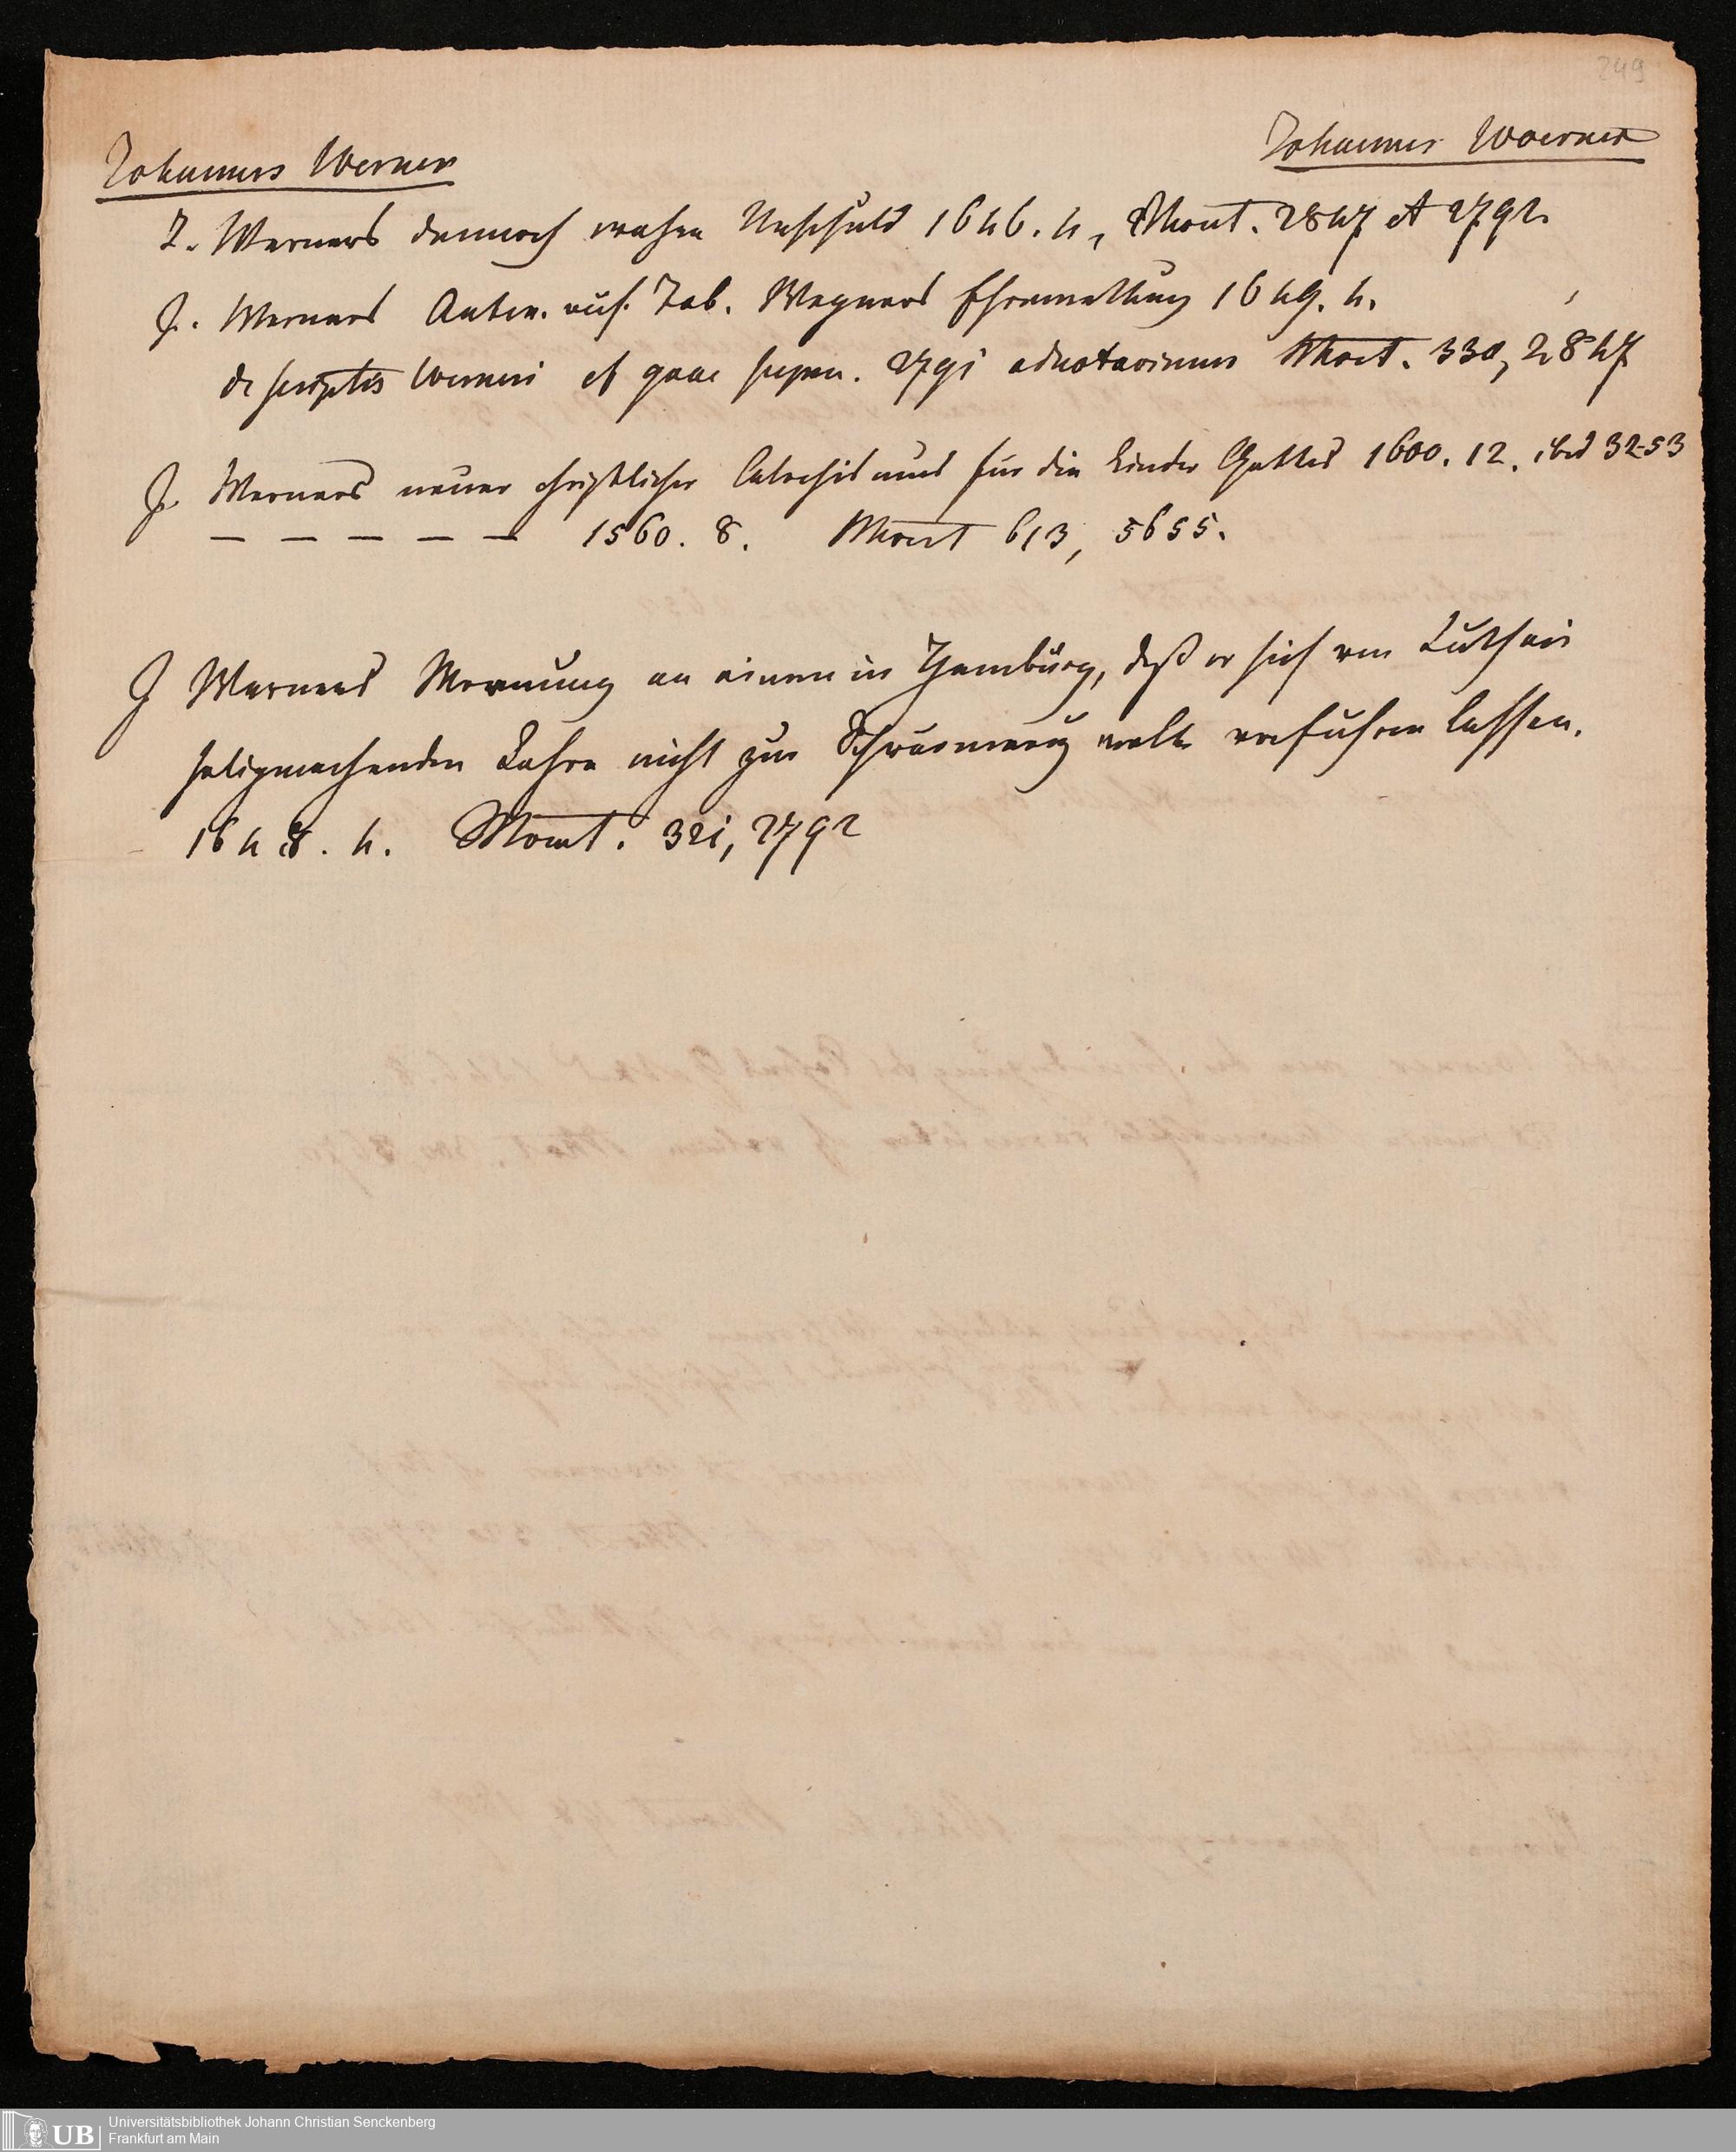 249
Johannes Werner
Johannes Woerner
J. Werners dennoch wahre Unschuld 1646. 4, Mont. 2847 et 2792.
J. Werners Antw. auf Tob. Wagners Ehrenrettung 1649. 4.
de scriptis Werneri et quae supra. 2791 adnotavimus Mont. 330, 2847
J. Werners neuer christlicher Catechismus für die Kinder Gottes 1600. 12. ibid 3253
— — — — — 1560. 8. Mont 613, 5655.
J Werners Warnung an einen in Hamburg, daß er sich von Lutheri
seligmachenden Lehre nicht zur Schwärmerey wolle verführen lassen.
1648. 4. Mont. 321, 2792
UB Universitätsbibliothek Johann Christian Senckenberg
Frankfurt am Main